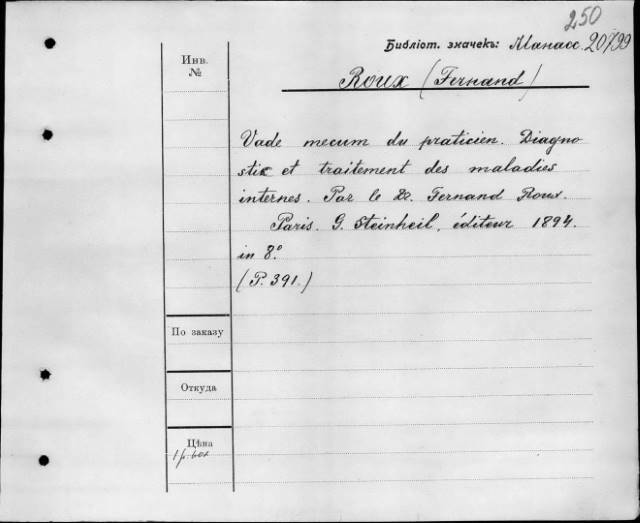 250
Библіот. значекъ: Manasс. 20/39
Инв.
№
Roux (Fernand)
Vade mecum du praticien. Diagno
stic et traitement des maladies
internes. Par le Dr. Fernand Roux.
Paris. G. Steinheil, éditeur 1894.
in 8°.
(P. 391.)
По заказу
Откуда
Цѣна